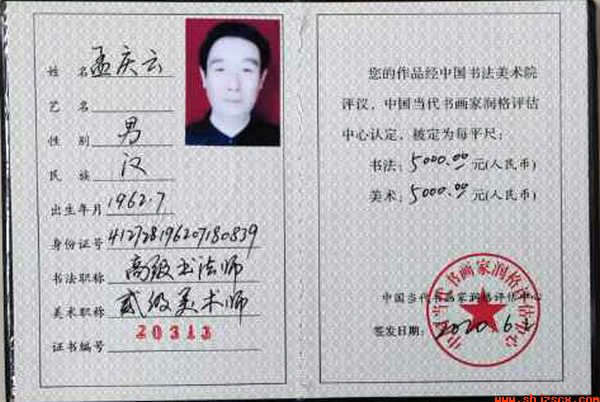 姓名 孟庆云
艺名
性别 男
民族 汉
出生年月 1962.7
身份证号 412728196207180839
书法职称 高级书法师
美术职称 贰级美术师
证书编号 20313
您的作品经中国书法美术院
评议，中国当代书画家润格评估
中心认定，被定为每平尺：
书法：5000.00 元(人民币)
美术：5000.00 元(人民币)
中国当代书画家润格评估中心
中国当代书画家润格评估中心
签发日期：2020.6
www.shjzscx.com